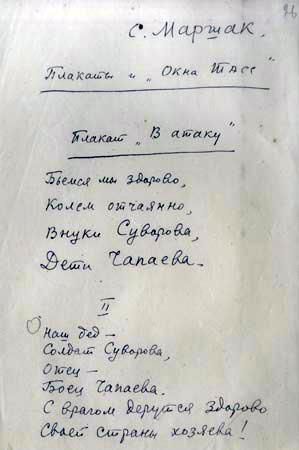 26
С. Маршак.
Плакаты и „Окна ТАСС"
Плакат „В атаку"
Бьемся мы здорово,
Колем отчаянно,
Внуки Суворова,
Дети Чапаева.
II
Наш дед —
Солдат Суворова,
Отец —
Боец Чапаева.
С врагом дерутся здорово
Своей страны хозяева!